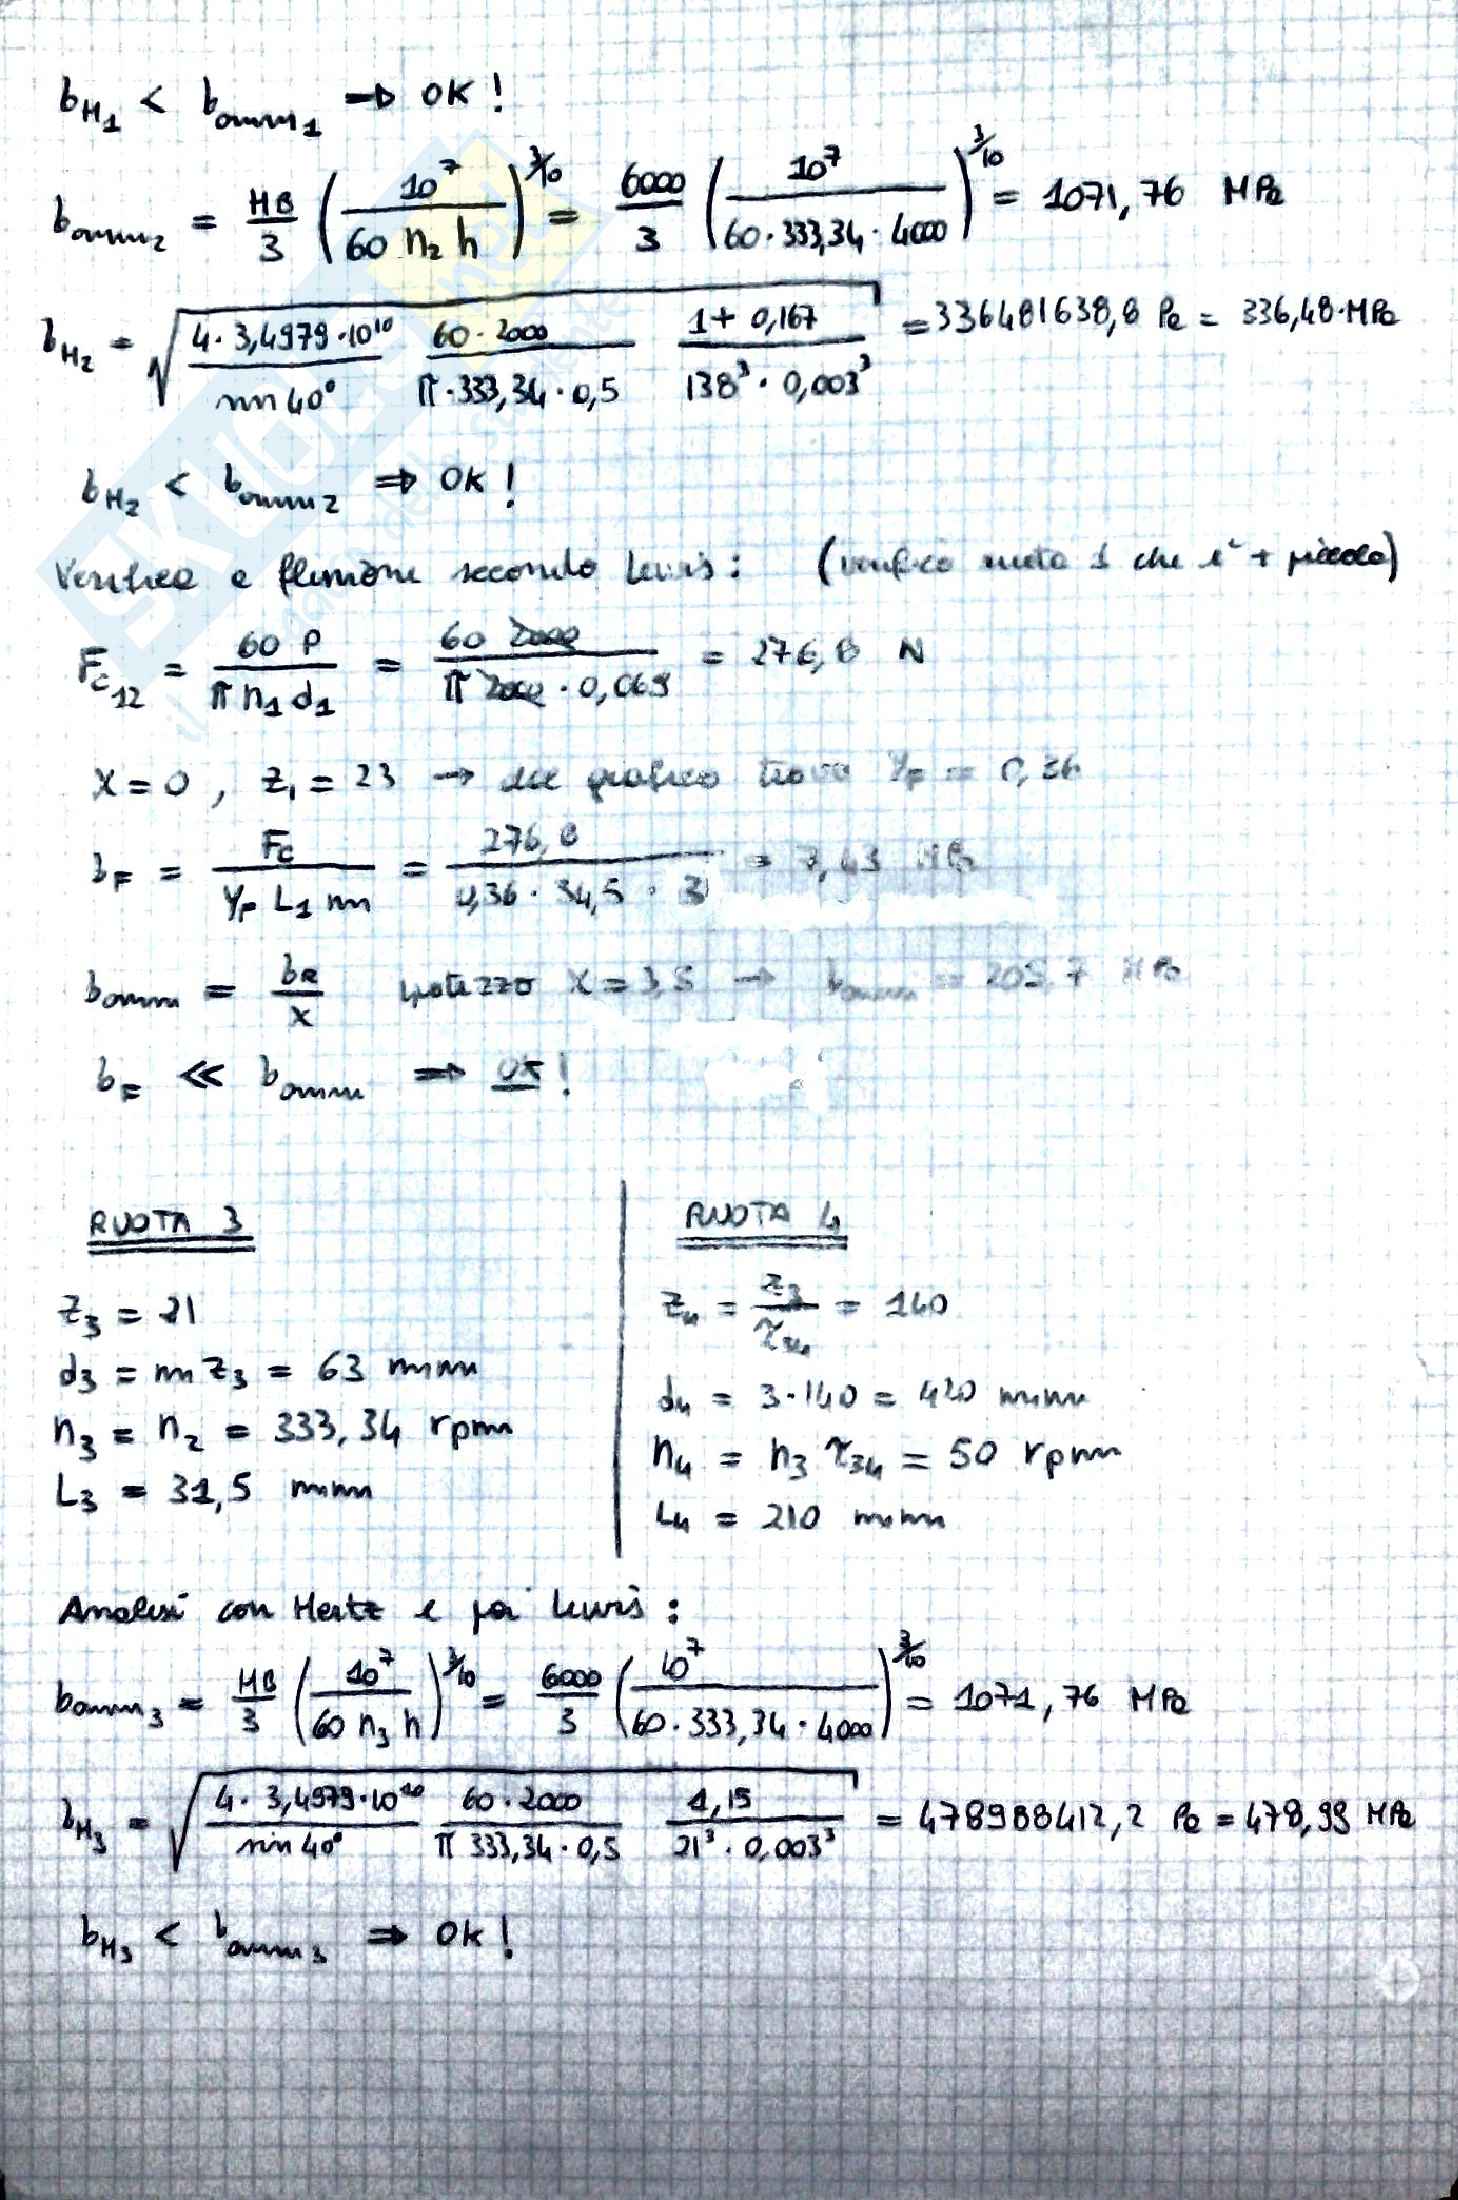 b_H1 < b_amm1 → OK!
b_amm2 = HB/3 (10^7 / 60 n2 h)^3/10 = 6000/3 (10^7 / 60·333,34·4000)^3/10 = 1071,76 MPa
b_H2 = √(4·3,4979·10^10 / sin 40° 60·2000 / π·333,34·0,5 1+0,167 / 138^3·0,003^3) = 336481638,8 Pa = 336,48 MPa
b_H2 < b_amm2 ⇒ OK!
Verifica a flessione secondo Lewis: (verifico ruota 1 che è + piccola)
Fc12 = 60 P / π n1 d1 = 60 2000 / π 2000 · 0,069 = 276,8 N
X = 0, z1 = 23 → dal grafico trovo YF = 0,36
b_F = Fc / YF L1 m = 276,8 / 0,36 · 34,5 · 3 = 7,43 MPa
b_amm = bR / X ipotizzo X = 3,5 → b_amm = 205,7 MPa
b_F << b_amm ⇒ OK!
RUOTA 3
z3 = 21
d3 = m z3 = 63 mm
n3 = n2 = 333,34 rpm
L3 = 31,5 mm
RUOTA 4
z4 = z3 / τ34 = 140
d4 = 3·140 = 420 mm
n4 = n3 τ34 = 50 rpm
L4 = 210 mm
Analisi con Hertz e poi Lewis:
b_amm3 = HB/3 (10^7 / 60 n3 h)^3/10 = 6000/3 (10^7 / 60·333,34·4000)^3/10 = 1071,76 MPa
b_H3 = √(4·3,4979·10^10 / sin 40° 60·2000 / π 333,34·0,5 1,15 / 21^3·0,003^3) = 478988412,2 Pa = 478,99 MPa
b_H3 < b_amm3 ⇒ OK!